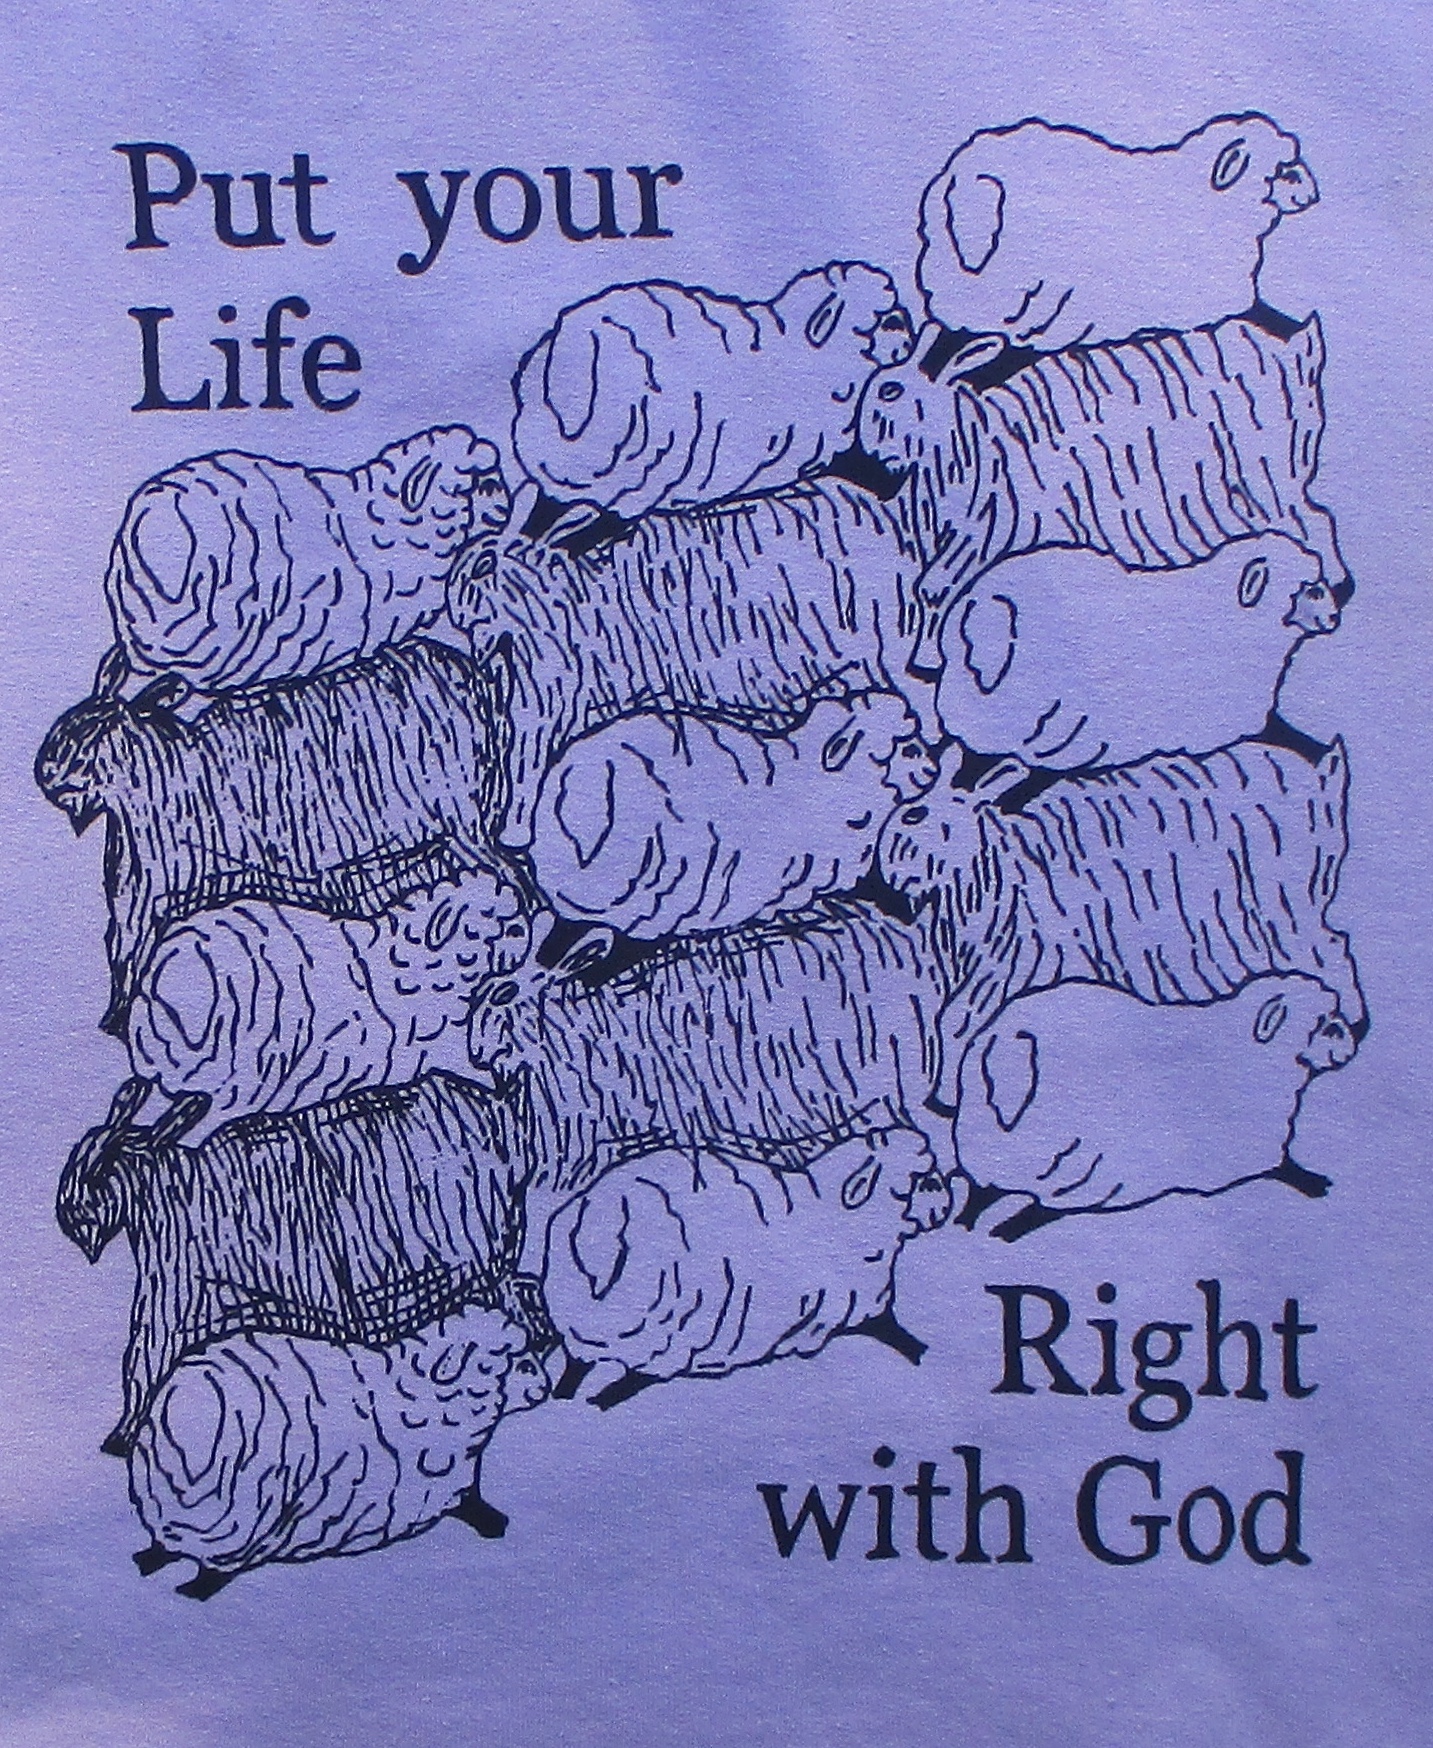 Put your
Life
Right
with God